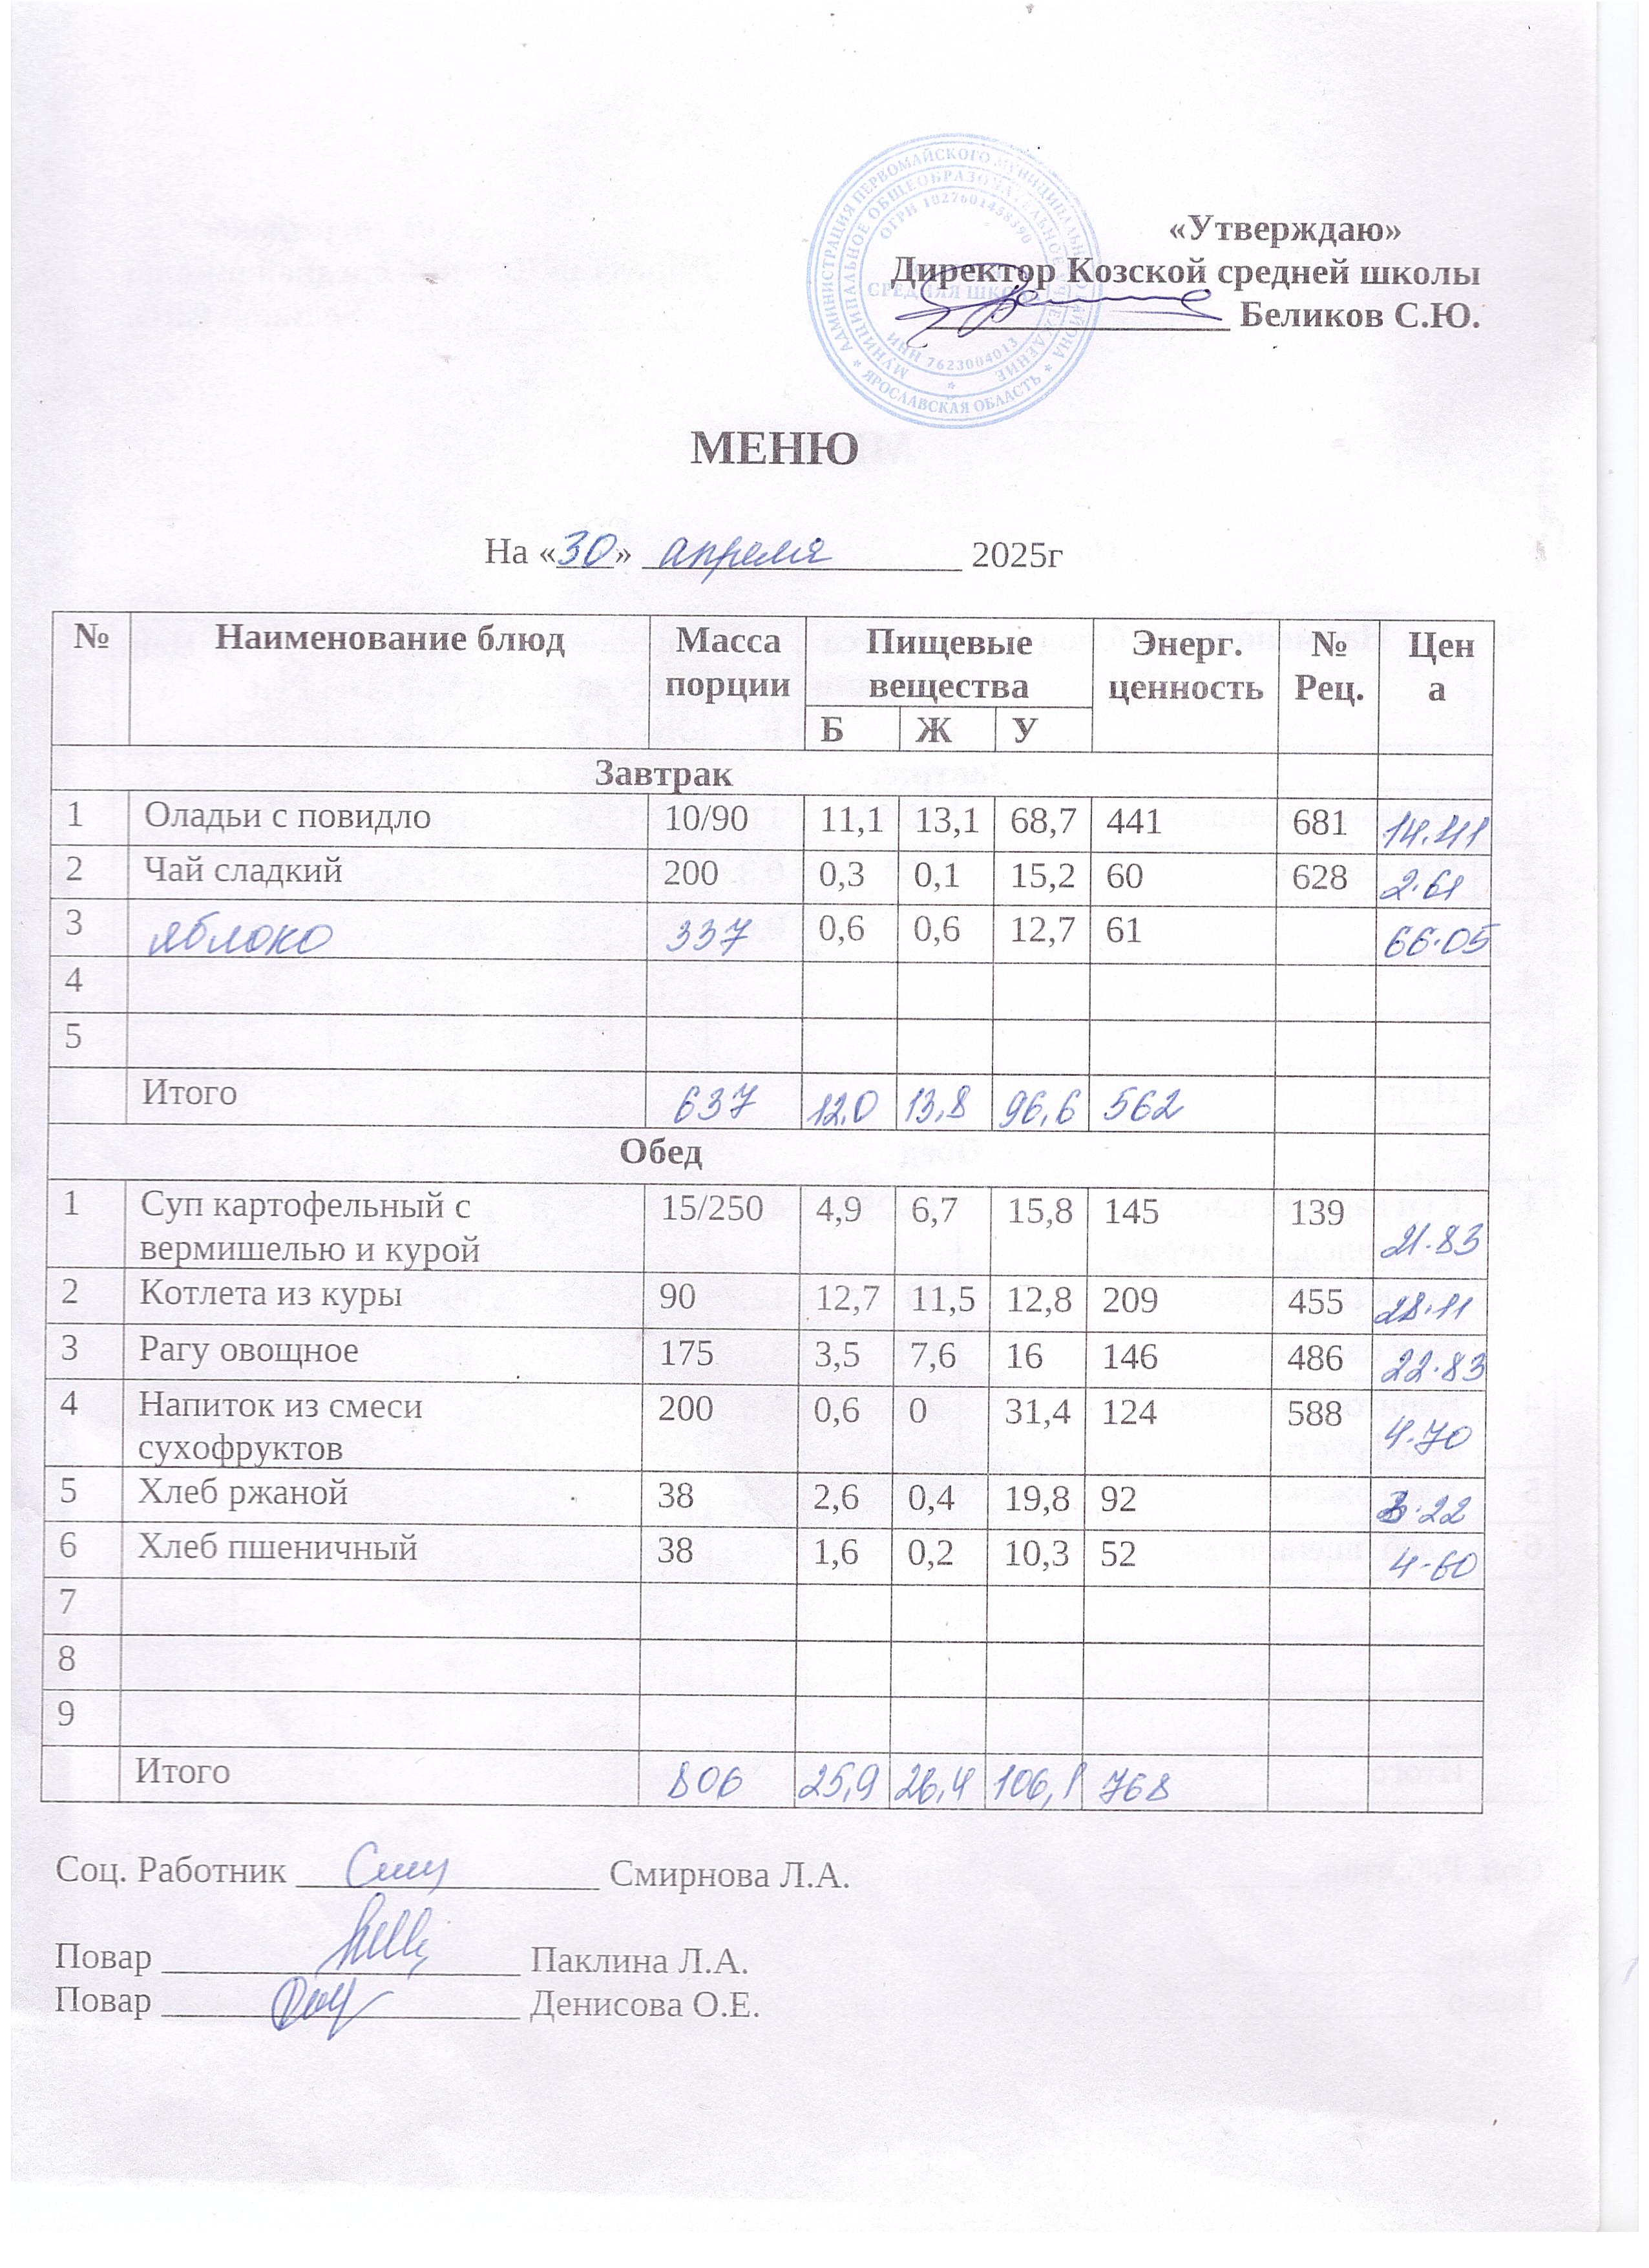 АДМИНИСТРАЦИЯ ПЕРВОМАЙСКОГО МУНИЦИПАЛЬНОГО РАЙОНА * ЯРОСЛАВСКАЯ ОБЛАСТЬ *
МУНИЦИПАЛЬНОЕ ОБЩЕОБРАЗОВАТЕЛЬНОЕ УЧРЕЖДЕНИЕ
ОГРН 1027601458390
СРЕДНЯЯ ШКОЛА
ИНН 7623004013
«Утверждаю»
Директор Козской средней школы
Беликов С.Ю.
МЕНЮ
На «30» апреля 2025г
№ Наименование блюд Масса порции Пищевые вещества Энерг. ценность № Рец. Цена
Б Ж У
Завтрак
1 Оладьи с повидло 10/90 11,1 13,1 68,7 441 681 14.41
2 Чай сладкий 200 0,3 0,1 15,2 60 628 2.61
3 яблоко 337 0,6 0,6 12,7 61 66.05
4
5
Итого 637 12,0 13,8 96,6 562
Обед
1 Суп картофельный с 15/250 4,9 6,7 15,8 145 139 21.83
вермишелью и курой
2 Котлета из куры 90 12,7 11,5 12,8 209 455 28.11
3 Рагу овощное 175 3,5 7,6 16 146 486 22.83
4 Напиток из смеси 200 0,6 0 31,4 124 588 4.70
сухофруктов
5 Хлеб ржаной 38 2,6 0,4 19,8 92
6 Хлеб пшеничный 38 1,6 0,2 10,3 52 4.60
7
8
9
Итого 806 25,9 26,4 106,1 768
Соц. Работник Смирнова Л.А.
Повар Паклина Л.А.
Повар Денисова О.Е.